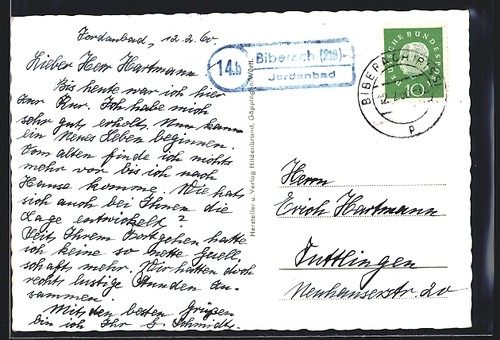 Jordanbad, 12.2.60
Lieber Herr Hartmann
Bis heute war ich hier
zur Kur. Ich habe mich
sehr gut erholt. Nun kann
ein neues Leben beginnen.
Vom alten finde ich nichts
mehr vor bis ich nach
Hause komme. Wie hat
sich auch bei Ihnen die
Lage entwickelt?
Seit Ihrem Fortgehen hatte
ich keine so nette Gesell
schaft mehr. Wir hatten doch
rechts lustige Stunden zu-
sammen.
Mit den besten Grüßen
bin ich Ihr S. Schmidt.
14b
Biberach (Riß)-
Jordanbad
Hersteller u. Verlag Hildenbrand, Göppingen/Württ.
DEUTSCHE BUNDESPOST
10
BIBERACH (RISS)
Herrn
Erich Hartmann
Tuttlingen
Neuhauserstr. 20